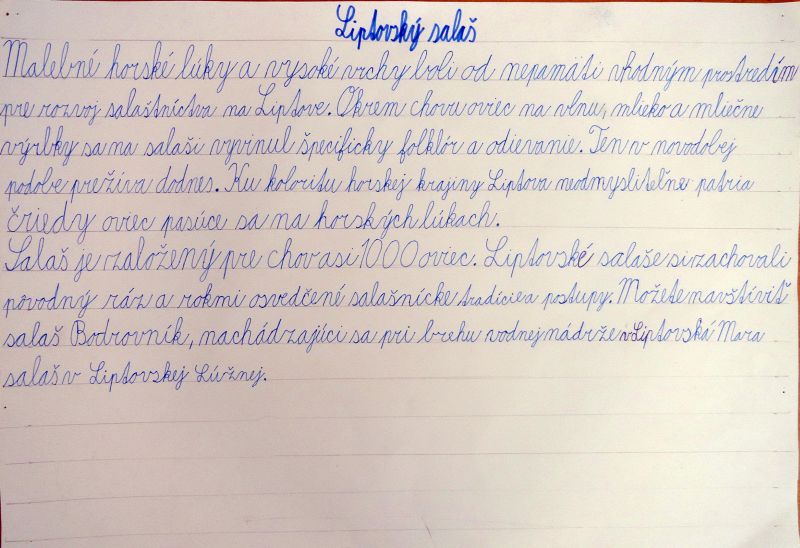 Liptovský salaš
Malebné horské lúky a vysoké vrchy boli od nepamäti vhodným prostredím
pre rozvoj salaštníctva na Liptove. Okrem chovu oviec na vlnu, mlieko a mliečne
výrbky sa na salaši vyvinul špecificky folklór a odievanie. Ten v novodobej
podobe prežíva dodnes. Ku koloritu horskej krajiny Liptova neodmysliteľne patria
čriedy oviec pasúce sa na horských lúkach.
Salaš je založený pre chov asi 1000 oviec. Liptovské salaše si zachovali
pôvodný ráz a rokmi osvedčené salašnícke tradície a postupy. Možete navštíviť
salaš Bodrovník, nachádzajúci sa pri brehu vodnej nádrže v Liptovská Mara
salaš v Liptovskej Lúžnej.